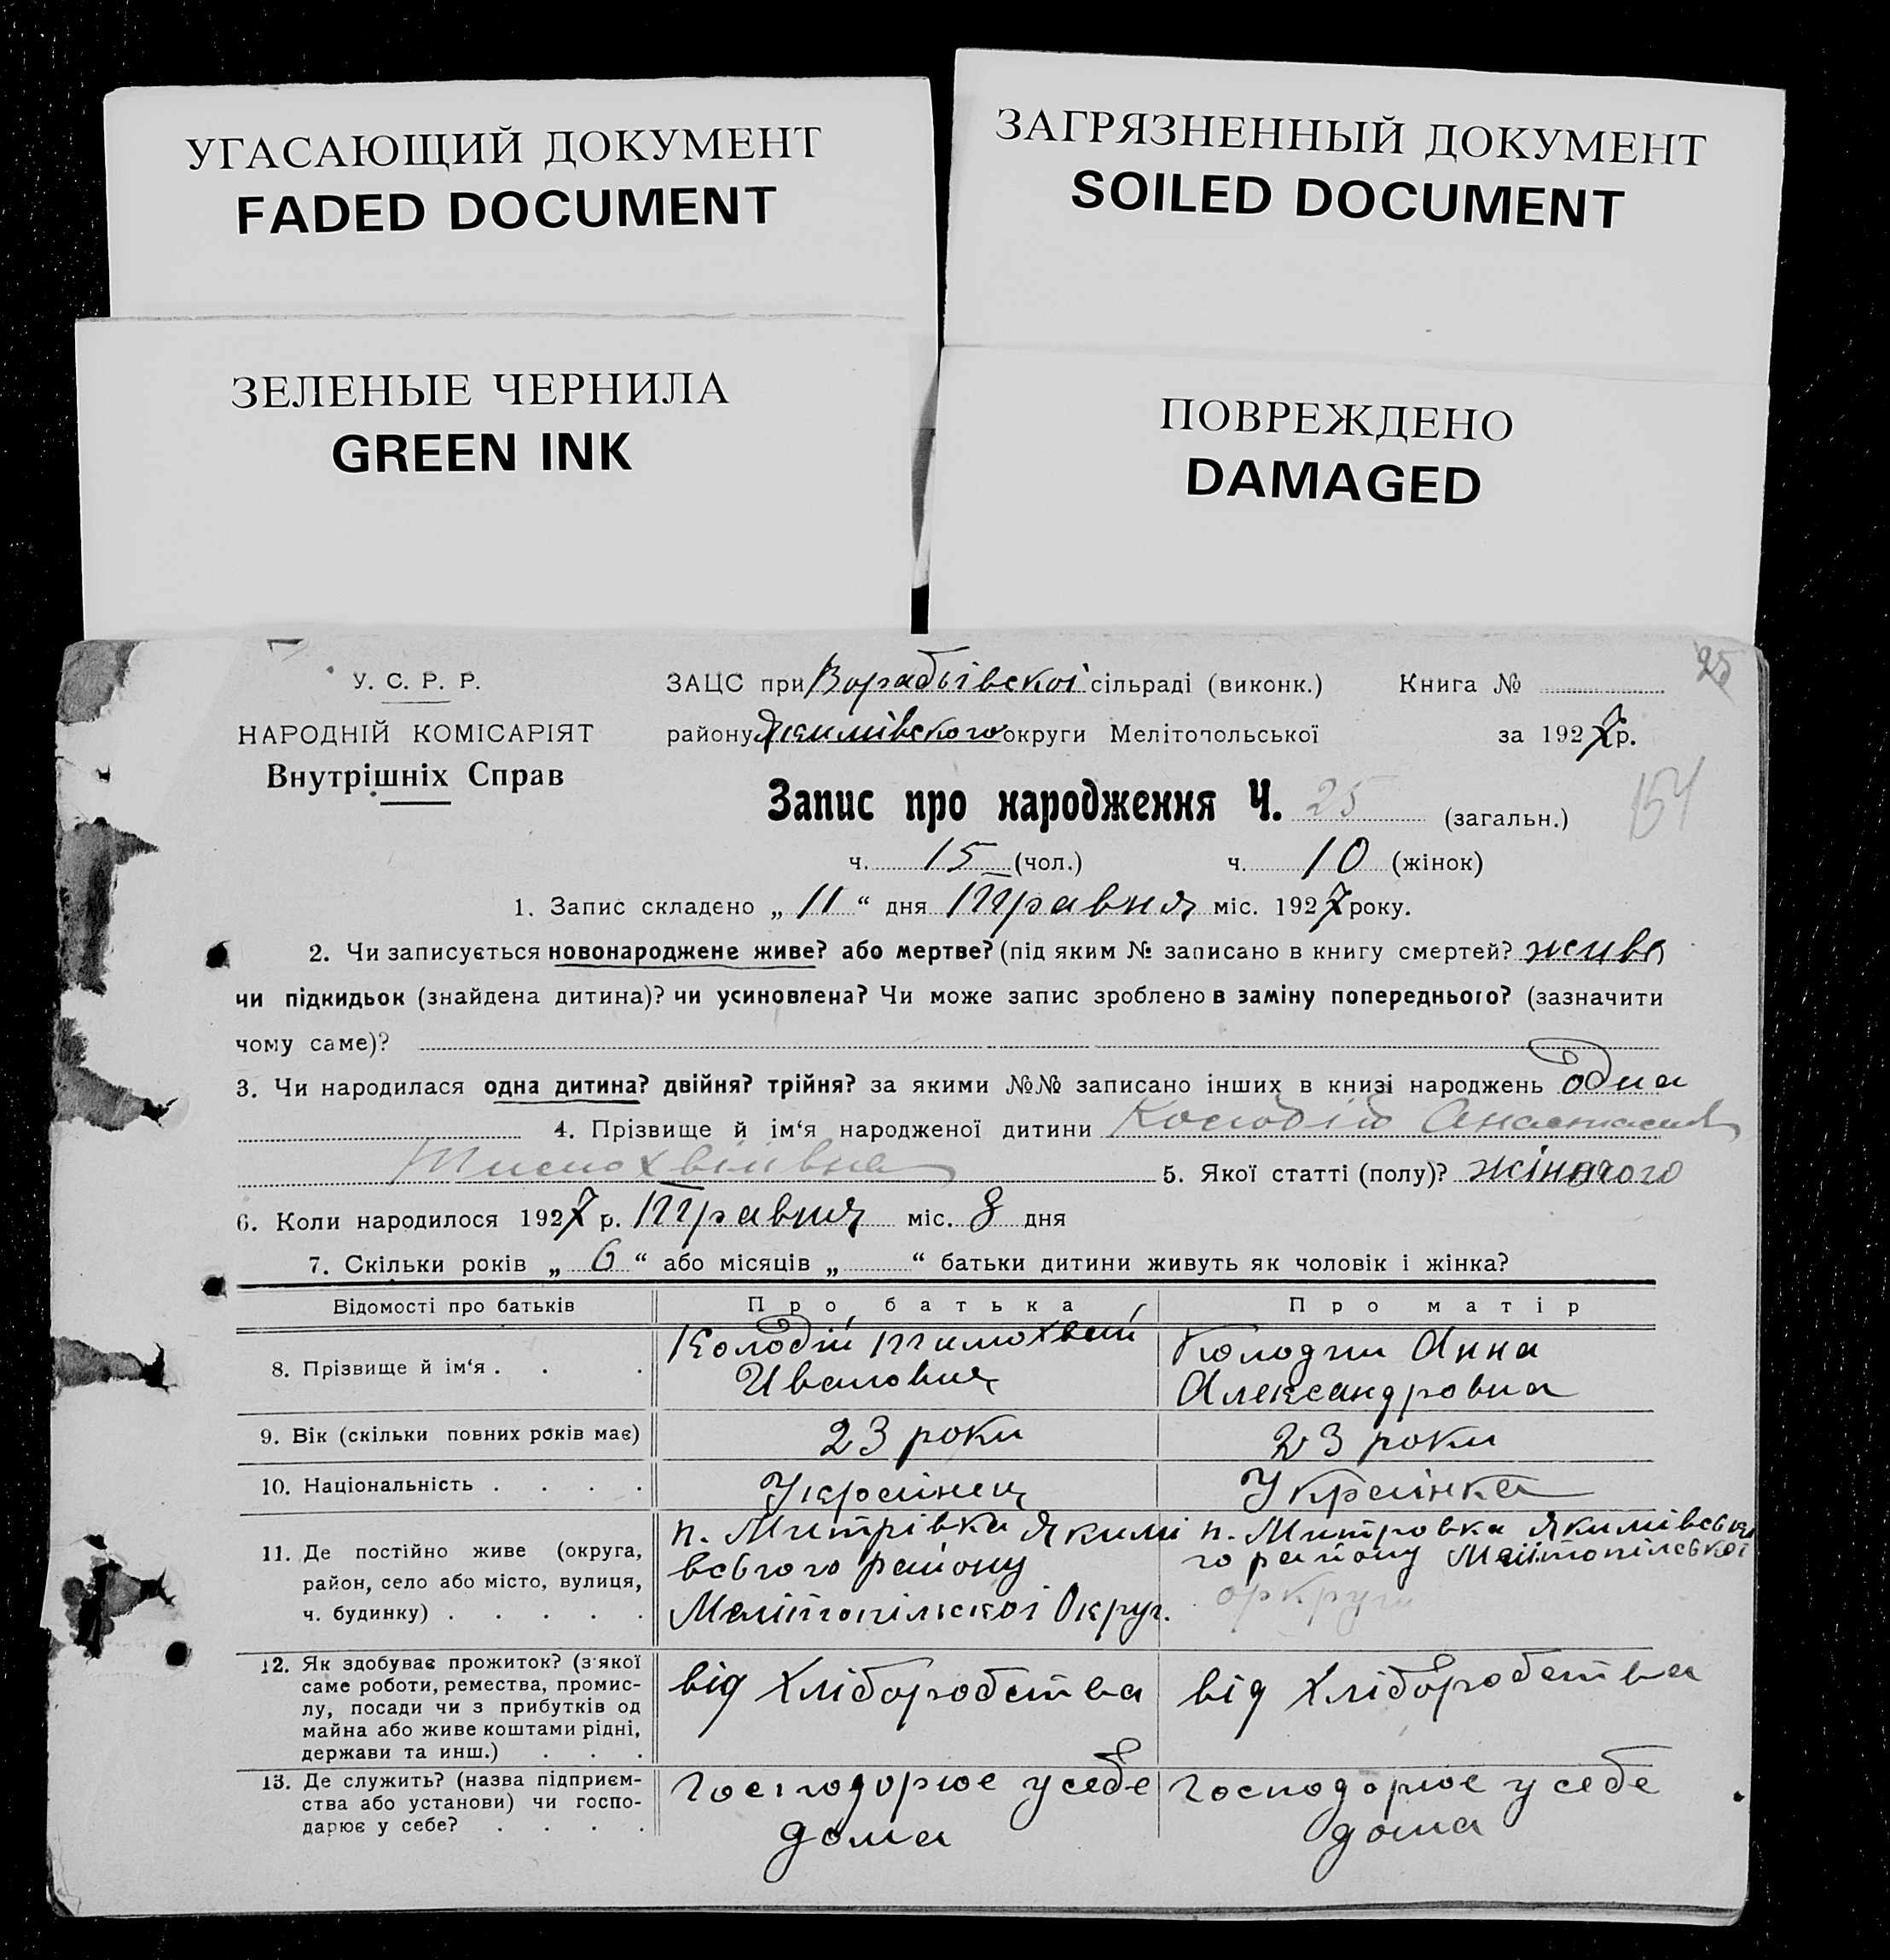 УГАСАЮЩИЙ ДОКУМЕНТ
FADED DOCUMENT
ЗАГРЯЗНЕННЫЙ ДОКУМЕНТ
SOILED DOCUMENT
ЗЕЛЕНЫЕ ЧЕРНИЛА
GREEN INK
ПОВРЕЖДЕНО
DAMAGED
25
У. С. Р. Р.
НАРОДНІЙ КОМІСАРІЯТ
Внутрішніх Справ
ЗАЦС при Ворабьівскоі сільраді (виконк.) Книга №
району Якимівского округи Мелітопольської за 1927 р.
Запис про народження Ч. 25 (загальн.)
154
ч. 15 (чол.) ч. 10 (жінок)
1. Запис складено „ 11 “ дня Травня міс. 1927 року.
2. Чи записується новонароджене живе? або мертве? (під яким № записано в книгу смертей? живе
чи підкидьок (знайдена дитина)? чи усиновлена? Чи може запис зроблено в заміну попереднього? (зазначити
чому саме)?
3. Чи народилася одна дитина? двійня? трійня? за якими №№ записано інших в книзі народжень одна
4. Прізвище й ім‘я народженої дитини Колодій Анастасія
Тимохвіівна 5. Якої статті (полу)? жіночого
6. Коли народилося 1927 р. Травня міс. 8 дня
7. Скільки років „ 6 “ або місяців „ “ батьки дитини живуть як чоловік і жінка?
Відомості про батьків Про батька Про матір
8. Прізвище й ім‘я . . .
Колодій Тимохвій
Иванович
Колодий Анна
Александровна
9. Вік (скільки повних років має) 23 роки 23 роки
10. Національність . . . . Украінец Украінка
11. Де постійно живе (округа,
район, село або місто, вулиця,
ч. будинку) . . . . .
п. Митрівка Якимі
вського району
Мелітопільскоі Округ.
п. Митровка Якимівсько
го району Мелітопілськоі
оркруги
12. Як здобуває прожиток? (з'якої
саме роботи, ремества, промис-
лу, посади чи з прибутків од
майна або живе коштами рідні,
держави та инш.) . . .
від хліборобства
від хліборобства
13. Де служить? (назва підприєм-
ства або установи) чи госпо-
дарює у себе? . . . .
Господорює у себе
дома
Господорює у себе
дома